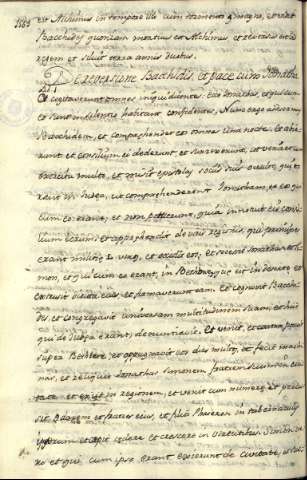 est Alchimus in tempore illo cum tormento magno, et vidit
Bacchides quoniam mortuus est Alchimus et reversus est ad
regem et siluit terra annis duobus.
De reversione Bacchidis et pace cum Jonatha
Et cogitaverunt omnes iniqui dicentes: Ecce Jonathas, et qui cum
eo sunt in silentio habitant confidenter, Nunc ergo adducamus
Bacchidem, et comprehendet eos omnes una nocte. Et abie
runt et consilium ei dederunt et surrexit, ut veniret cum
exercitu multo, et misit epistolas sociis suis qui
erant in Judea, ut comprehenderent Jonatham, et eos qui
cum eo erant, et non potuerunt, quia innotuit eis consi
lium eorum et apprehendit de viris regionis, qui principes
erant malitiæ L viros, et occidit eos, et secessit Jonathas et Si
mon, et qui cum eo erant, in Bethbessen quæ est in deserto, et
extruxit diruta eius, et firmaverunt eam. Et cognovit Bacchi
des et congregavit universam multitudinem suam, et his
qui de Judea erant, denuntiavit. Et venit, et castra posuit
supra Bethbessen, et oppugnavit eam dies multos, et fecit machi
nas, et reliquit Jonathas Simonem fratrem suum in civi
tate et exiit in regionem, et venit cum numero, et percus
sit Odaren et fratres eius, et filios Phaseron in tabernaculis
ipsorum et cœpit cædere et crescere in virtutibus Simon ve
ro et qui cum ipso erant exierunt de civitate, et